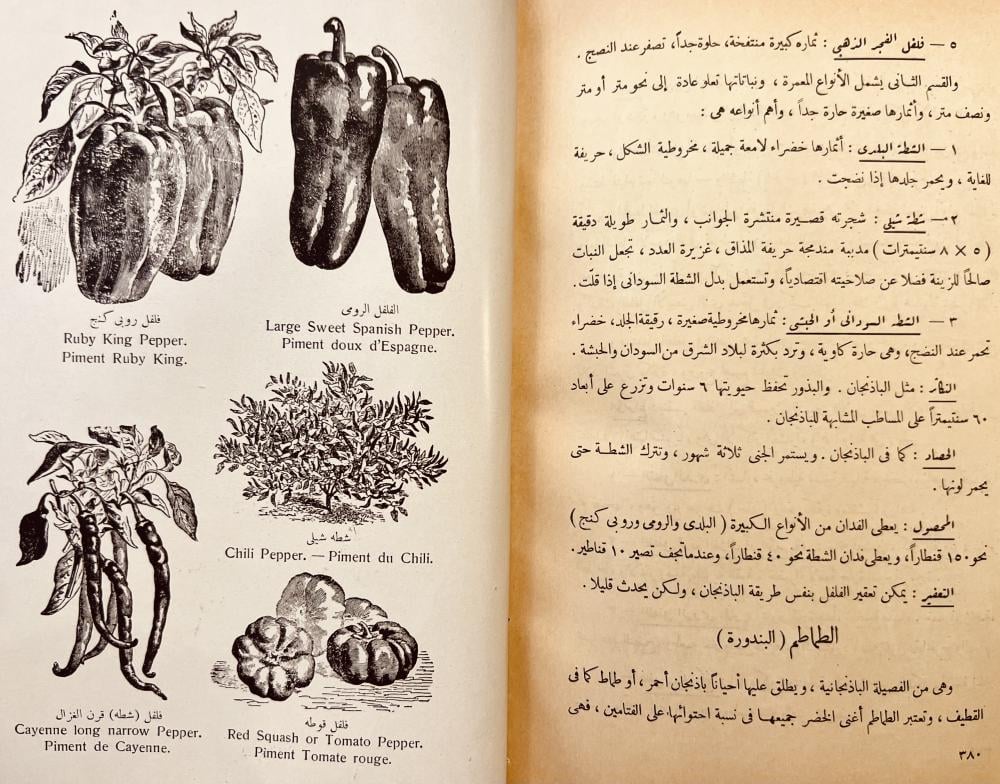 فلفل روبى كنج
Ruby King Pepper.
Piment Ruby King.
الفلفل الرومى
Large Sweet Spanish Pepper.
Piment doux d'Espagne.
شطه شيلى
Chili Pepper. — Piment du Chili.
فلفل (شطه) قرن الغزال
Cayenne long narrow Pepper.
Piment de Cayenne.
فلفل قوطه
Red Squash or Tomato Pepper.
Piment Tomate rouge.
٥ — فلفل الفجر الذهبى : ثماره كبيرة منتفخة، حلوة جداً، تصفر عند النضج .
والقسم الثانى يشمل الأنواع المعمرة ، ونباتاتها تعلو عادة إلى نحو متر أو متر
ونصف متر ، وأثمارها صغيرة حارة جداً ، وأهم أنواعه هى :
١ — الشطة البلدى : أثمارها خضراء لامعة جميلة ، مخروطية الشكل ، حريفة
للغاية ، ويحمر جلدها إذا نضجت .
٢ — شطة شيلى : شجرته قصيرة منتشرة الجوانب ، والثمار طويلة دقيقة
( ٥ × ٨ سنتيمترات ) مدببة مندمجة حريفة المذاق ، غزيرة العدد ، تجعل النبات
صالحاً للزينة فضلا عن صلاحيته اقتصادياً، وتستعمل بدل الشطة السودانى إذا قلّت .
٣ — الشطه السودانى أو الحبشى : ثمارها مخروطية صغيرة ، رقيقة الجلد، خضراء
تحمر عند النضج، وهى حارة كاوية ، وترد بكثرة لبلاد الشرق من السودان والحبشة .
التكاثر : مثل الباذنجان . والبذور تحفظ حيويتها ٦ سنوات وتزرع على أبعاد
٦٠ سنتيمتراً على المساطب المشابهة للباذنجان .
الحصاد : كما فى الباذنجان . ويستمر الجنى ثلاثة شهور ، وتترك الشطة حتى
يحمر لونها .
المحصول : يعطى الفدان من الأنواع الكبيرة ( البلدى والرومى وروبى كنج )
نحو ١٥٠ قنطاراً، ويعطى فدان الشطة نحو ٤٠ قنطاراً، وعندما تجف تصير ١٠ قناطير .
التعفير : يمكن تعفير الفلفل بنفس طريقة الباذنجان ، ولكن يحدث قليلا .
الطماطم ( البندورة )
وهى من الفصيلة الباذنجانية ، ويطلق عليها أحياناً باذنجان أحمر ، أو طماط كما فى
القطيف ، وتعتبر الطماطم أغنى الخضر جميعها فى نسبة احتوائها على الفتامين ، فهى
٣٨٠